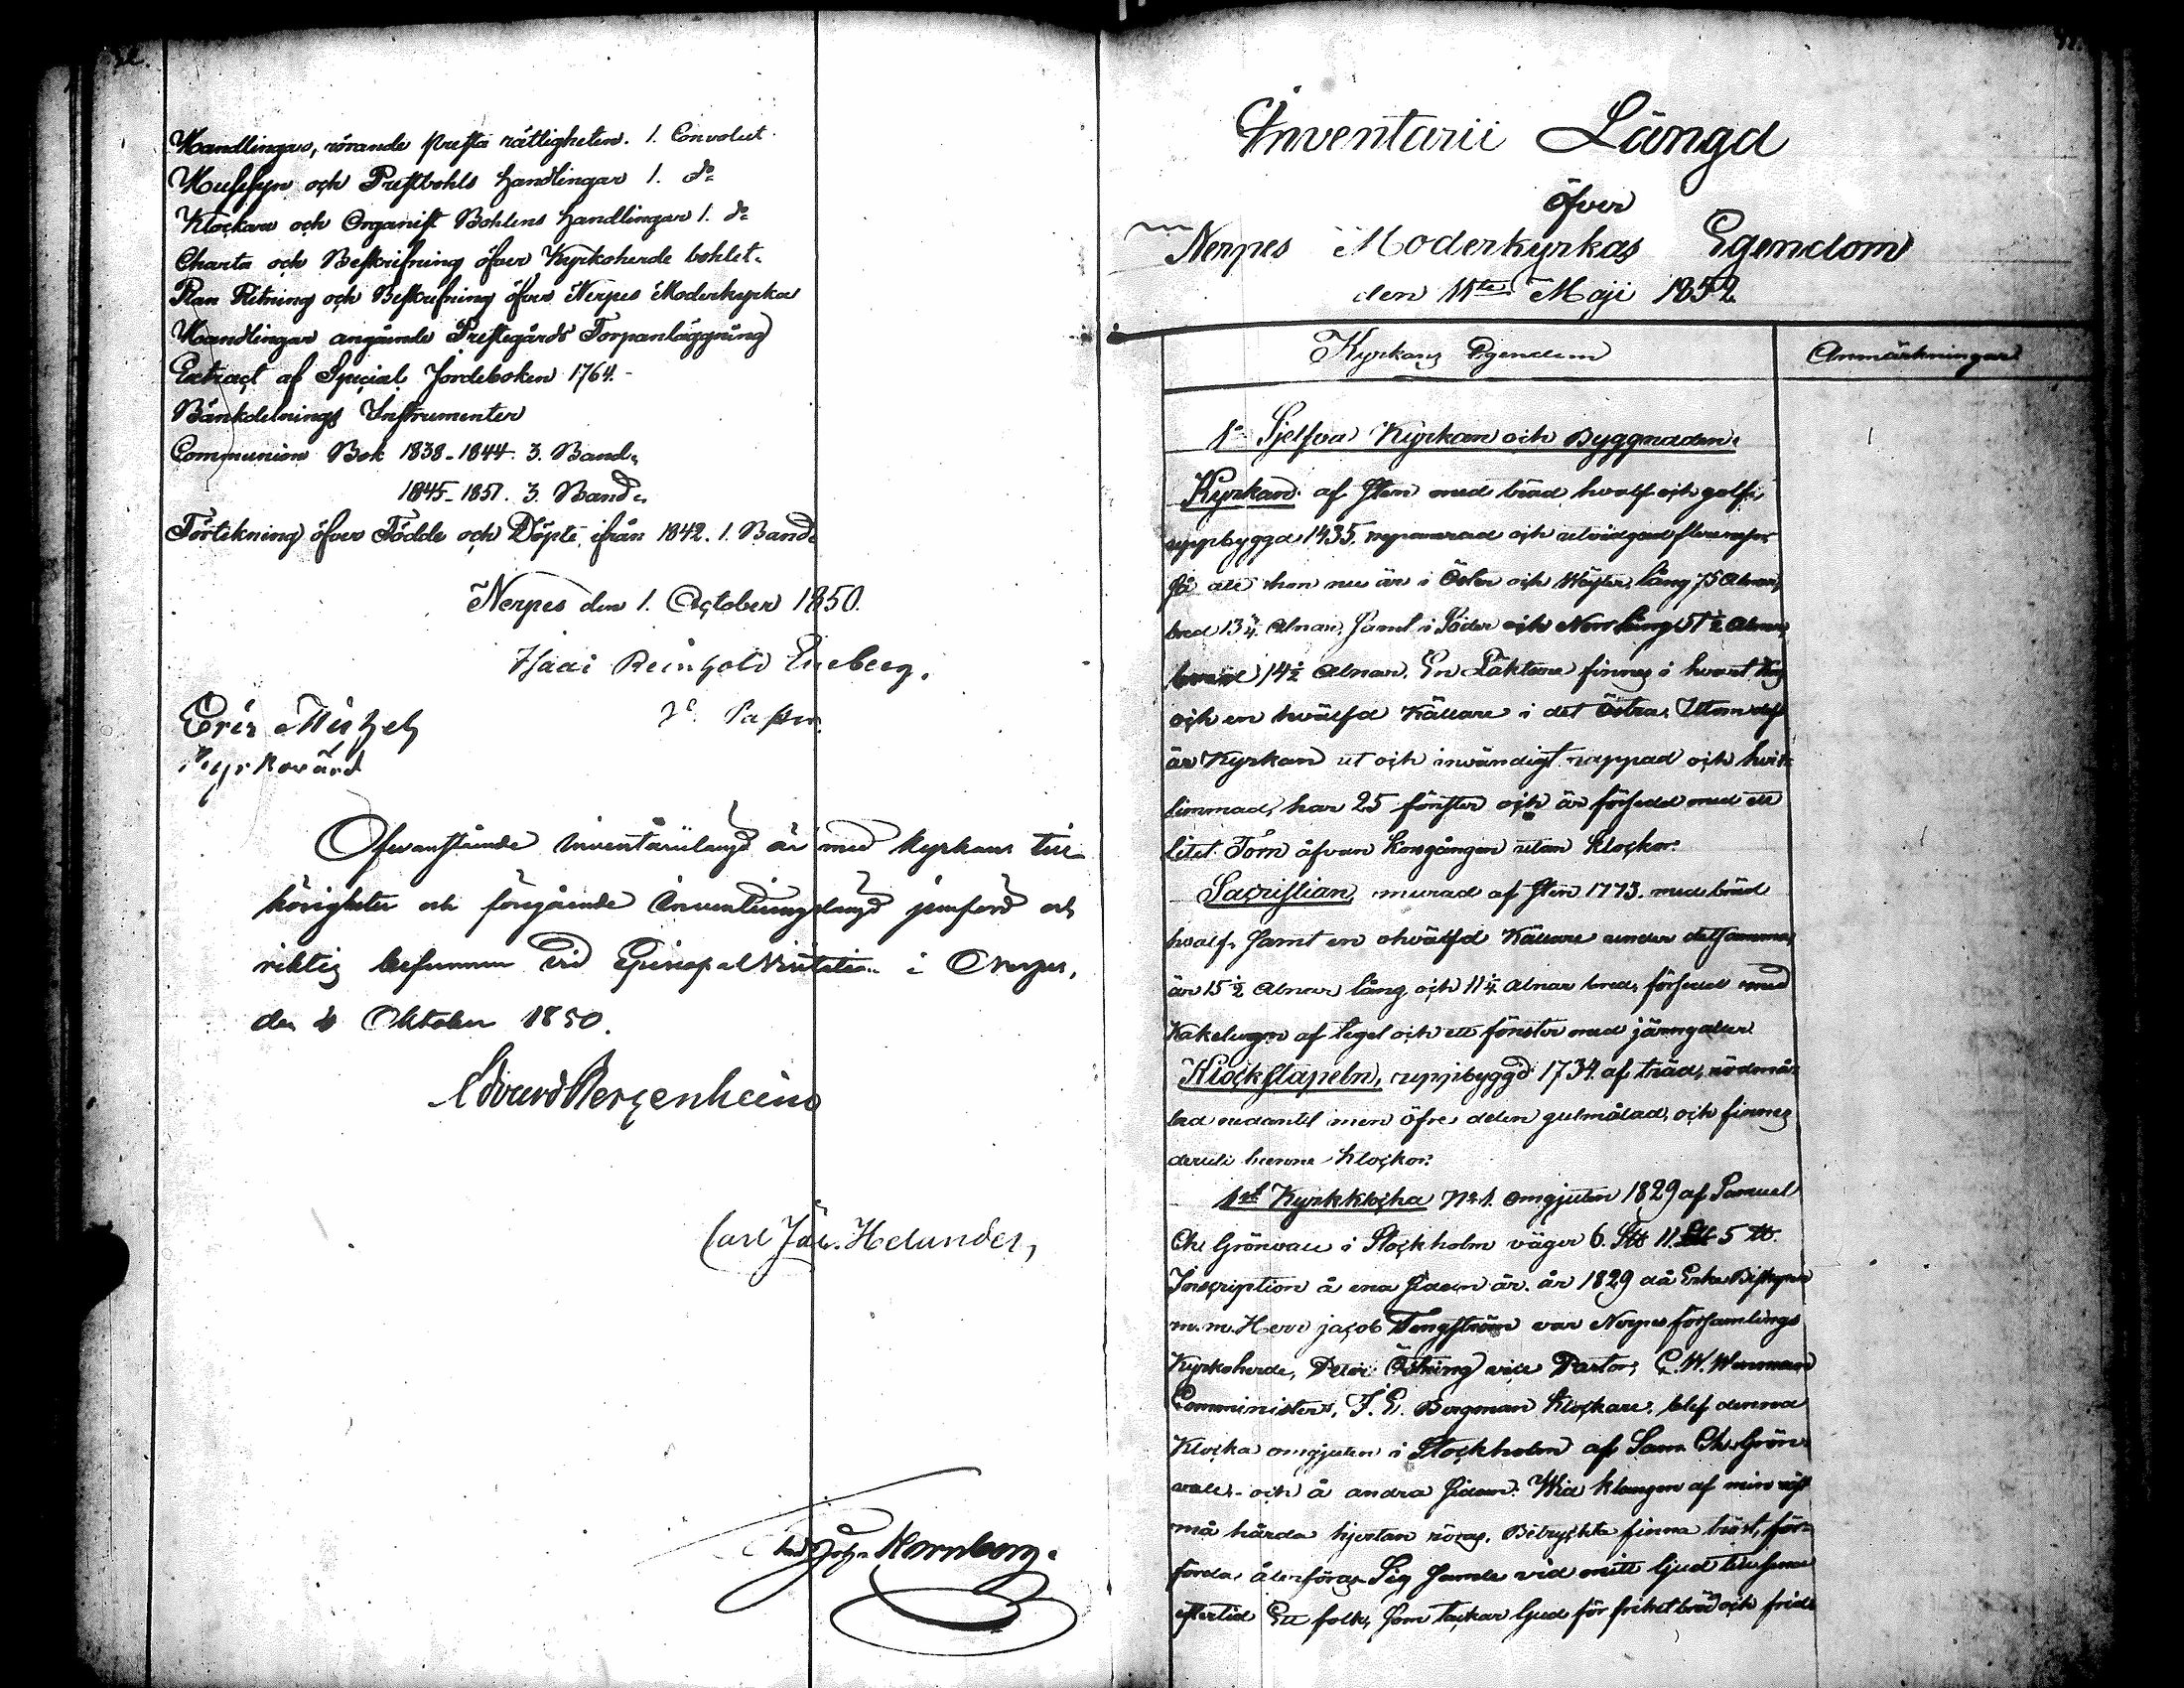 Handlingar, rörande prefta rättigheten. 1. Convolut
Huffyn och Preftbohls Handlingar 1. do
Klockare och Organift Bohlens Handlingar 1. do
Charta och Befkrifning öfver Kyrkoherde bohlet.
Plan Ritning och Befkrifning öfver Nerpes Moderkyrka
Handlingar angående Preftegårds Torpanläggning
Extract af Special Jordeboken 1764.
Bänkdelnings Inftrumenter
Communion Bok 1838-1844. 3. Band.
1845-1851. 3. Band.
Förtekning öfver Födde och Döpte ifrån 1842. 1. Band.
Nerpes den 1. October 1850.
Isaac Reinhold
Eric
Kyrkovärd
Ofvanstående inventariilängd är med kyrkans till-
hörigheter och föregående jemförd och
riktig befunnen vid Episcopal Visitation i Nerpes,
den Oktober 1850.
Edvard Bergenheim
Carl Jac. Helander,
Joh. Kornberg.
Inventarii Längd
öfver
Nerpes Moderkyrkas Egendom
den 11te Maji 1852
Kyrkans Egendom
Anmärkningar
1o Sjelfva Kyrkan och Byggnaden.
Kyrkan af Sten med bräd hvalf och golf,
uppbyggd 1435. reparerad och utvidgad
så att hon nu är i Öster och Väster lång 75 Alnar,
bred 13 Alnar, samt i Söder och Norr lång 51 1/2 Alnar,
bred 14 1/2 Alnar. En Läktare finnes i hvart
och en hvälfd Källare i det Östra. Utom
är Kyrkan ut och invändigt rappad och hvit
limmad, har 25 fönster och är försedd med ett
litet Torn åfvan Korsgången utan Klockor.
Sacriftian, murad af Sten 1773. med bräd
hvalf, samt en ohvälfd Källare under detsamma,
är 15 1/2 Alnar lång och 11 Alnar bred, försedd med
Kakelugn af tegel och ett fönster med järngaller
Klockstapeln, uppbyggd 1734. af träd, rödmå-
lad nedantill men öfre delen gulmålad, och finnes
deruti klockor.
Kyrkklocka No 1. omgjuten 1829 af Samuel
Ch. Grönvall i Stockholm väger 6. 11. 5
Inscription å ena sidan är. år 1829 då Erke Biskopen
m.m. Herr Jacob Tengström var Nerpes församlings
Kyrkoherde, Peter vice Pastor, C. W.
Comminister, J. E. Bergman Klockare. blef denna
Klocka omgjuten i Stockholm af Sam. Ch. Grön-
vall, och å andra sidan: Wid klangen af min röst
må hårda hjertan röras, Betryckta finna tröst, för-
förda återföras Sig samle vid mitt ljud
eftertid Ett folk, som tackar Gud för frihet bröd och frid.